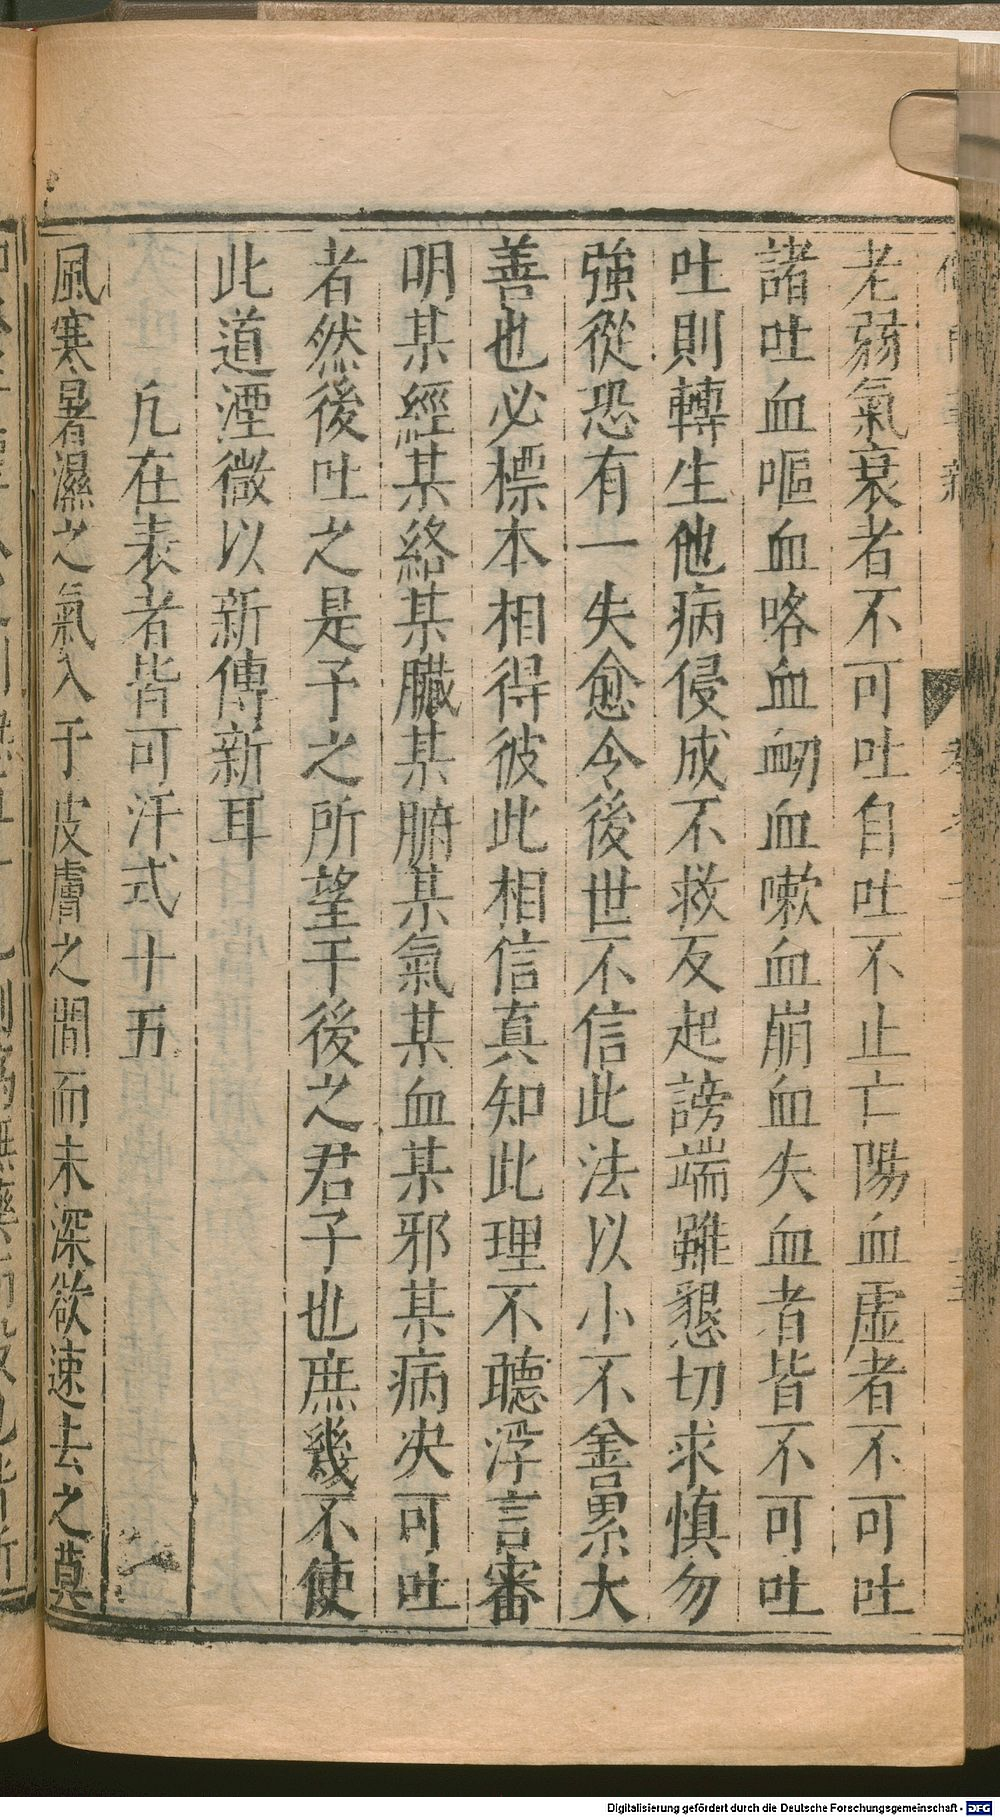 老弱氣衰者不可吐自吐不止亡陽血虛者不可吐
諸吐血嘔血咯血衂血嗽血崩血失血者皆不可吐
吐則轉生他病侵成不救反起謗端雖懇切求慎勿
強從恐有一失愈令後世不信此法以小不善累大
善也必標本相得彼此相信真知此理不聽浮言審
明某經某絡某臟某腑某氣某血某邪某病决可吐
者然後吐之是予之所望于後之君子也庶幾不使
此道湮微以新傳新耳
凡在表者皆可汗式十五
風寒暑濕之氣入于皮膚之間而未深欲速去之莫
Digitalisierung gefördert durch die Deutsche Forschungsgemeinschaft - DFG